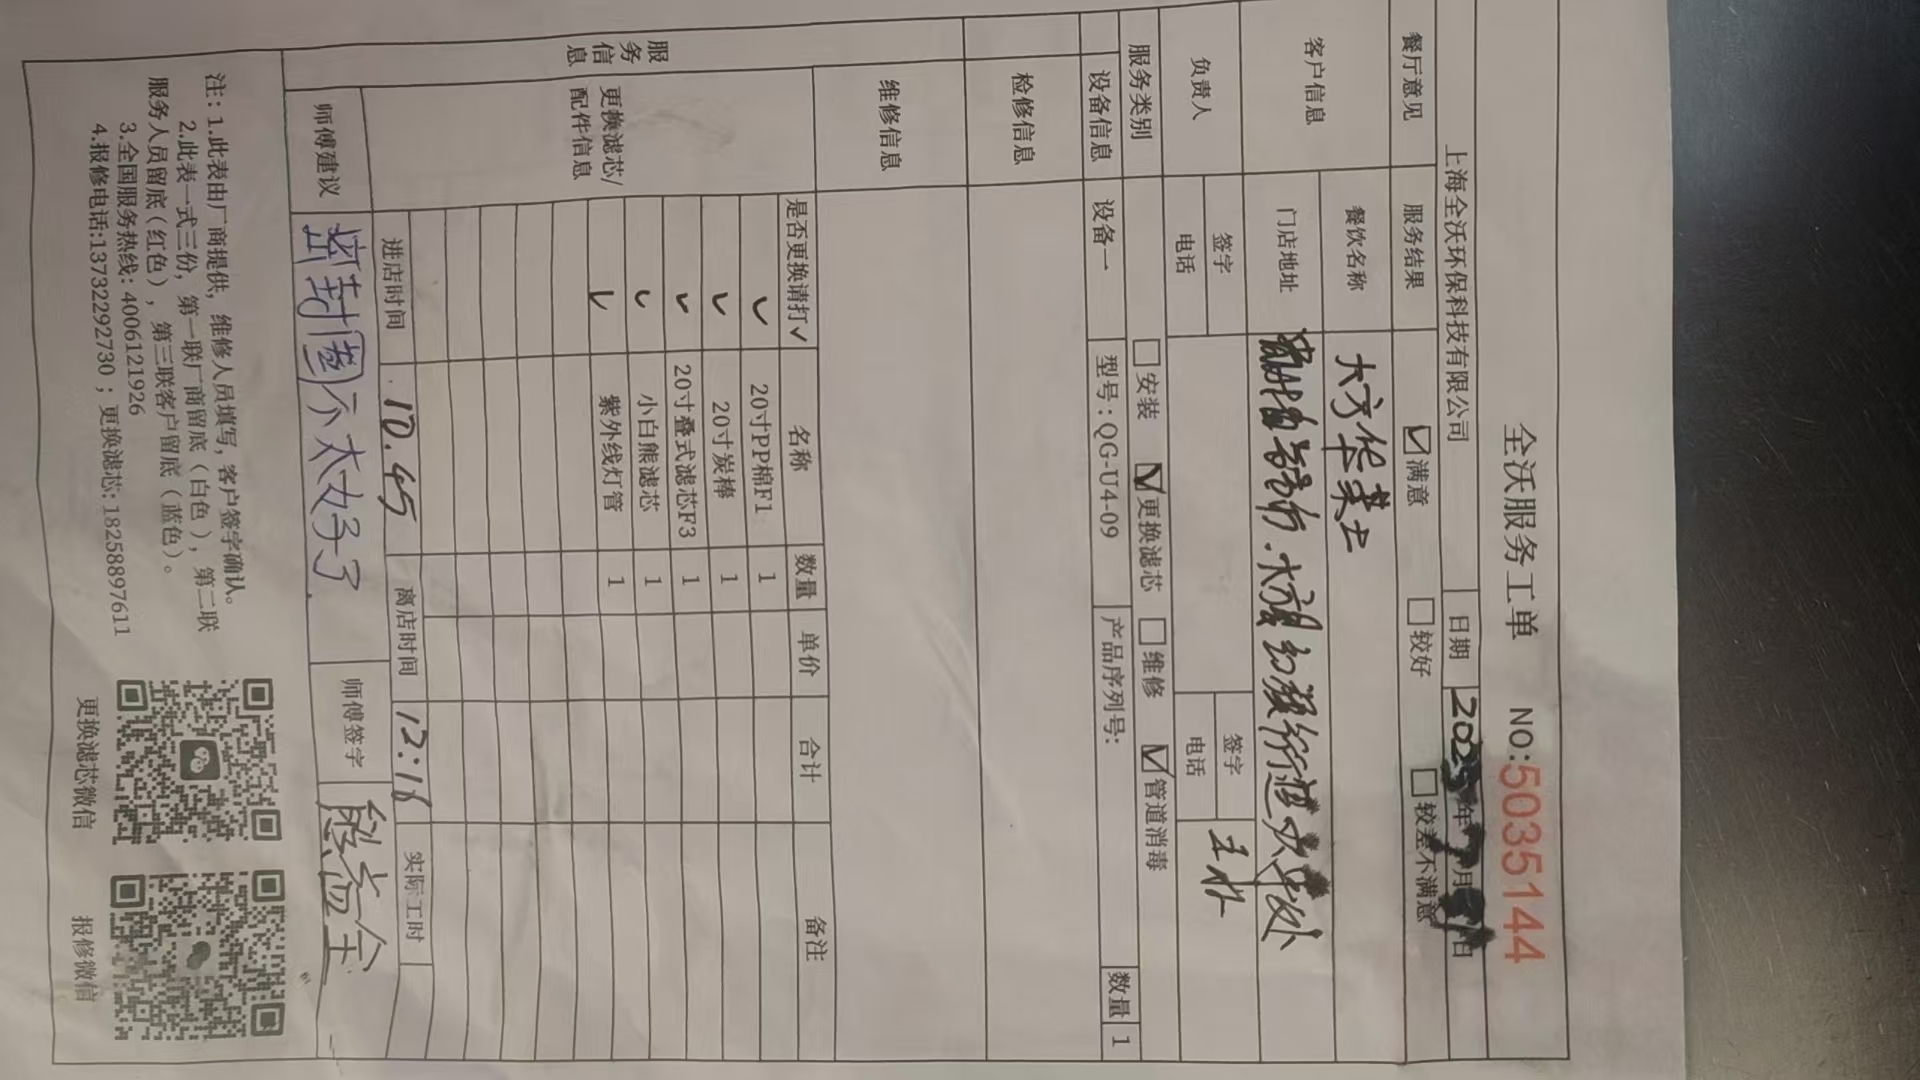 全沃服务工单 NO:5035144
上海全沃环保科技有限公司 日期 202 年 月 日
餐厅意见 服务结果 ☑满意 □较好 □较差不满意
客户信息 餐饮名称 大方华莱士
门店地址
负责人 签字 签字
电话 电话
服务类别 □安装 ☑更换滤芯 □维修 ☑管道消毒
设备信息 设备一 型号:QG-U4-09 产品序列号: 数量 1
检修信息
维修信息
服务信息
更换滤芯/
配件信息
是否更换请打✓ 名称 数量 单价 合计 备注
✓ 20寸PP棉F1 1
✓ 20寸炭棒 1
✓ 20寸叠式滤芯F3 1
✓ 小白熊滤芯 1
✓ 紫外线灯管 1
进店时间 10.45 离店时间 12:18 实际工时
师傅建议 密封圈不太好了. 师傅签字
注:1.此表由厂商提供,维修人员填写,客户签字确认。
2.此表一式三份,第一联厂商留底(白色),第二联
服务人员留底(红色),第三联客户留底(蓝色)。
3.全国服务热线:4006121926
4.报修电话:13732292730;更换滤芯:18258897611
更换滤芯微信
报修微信